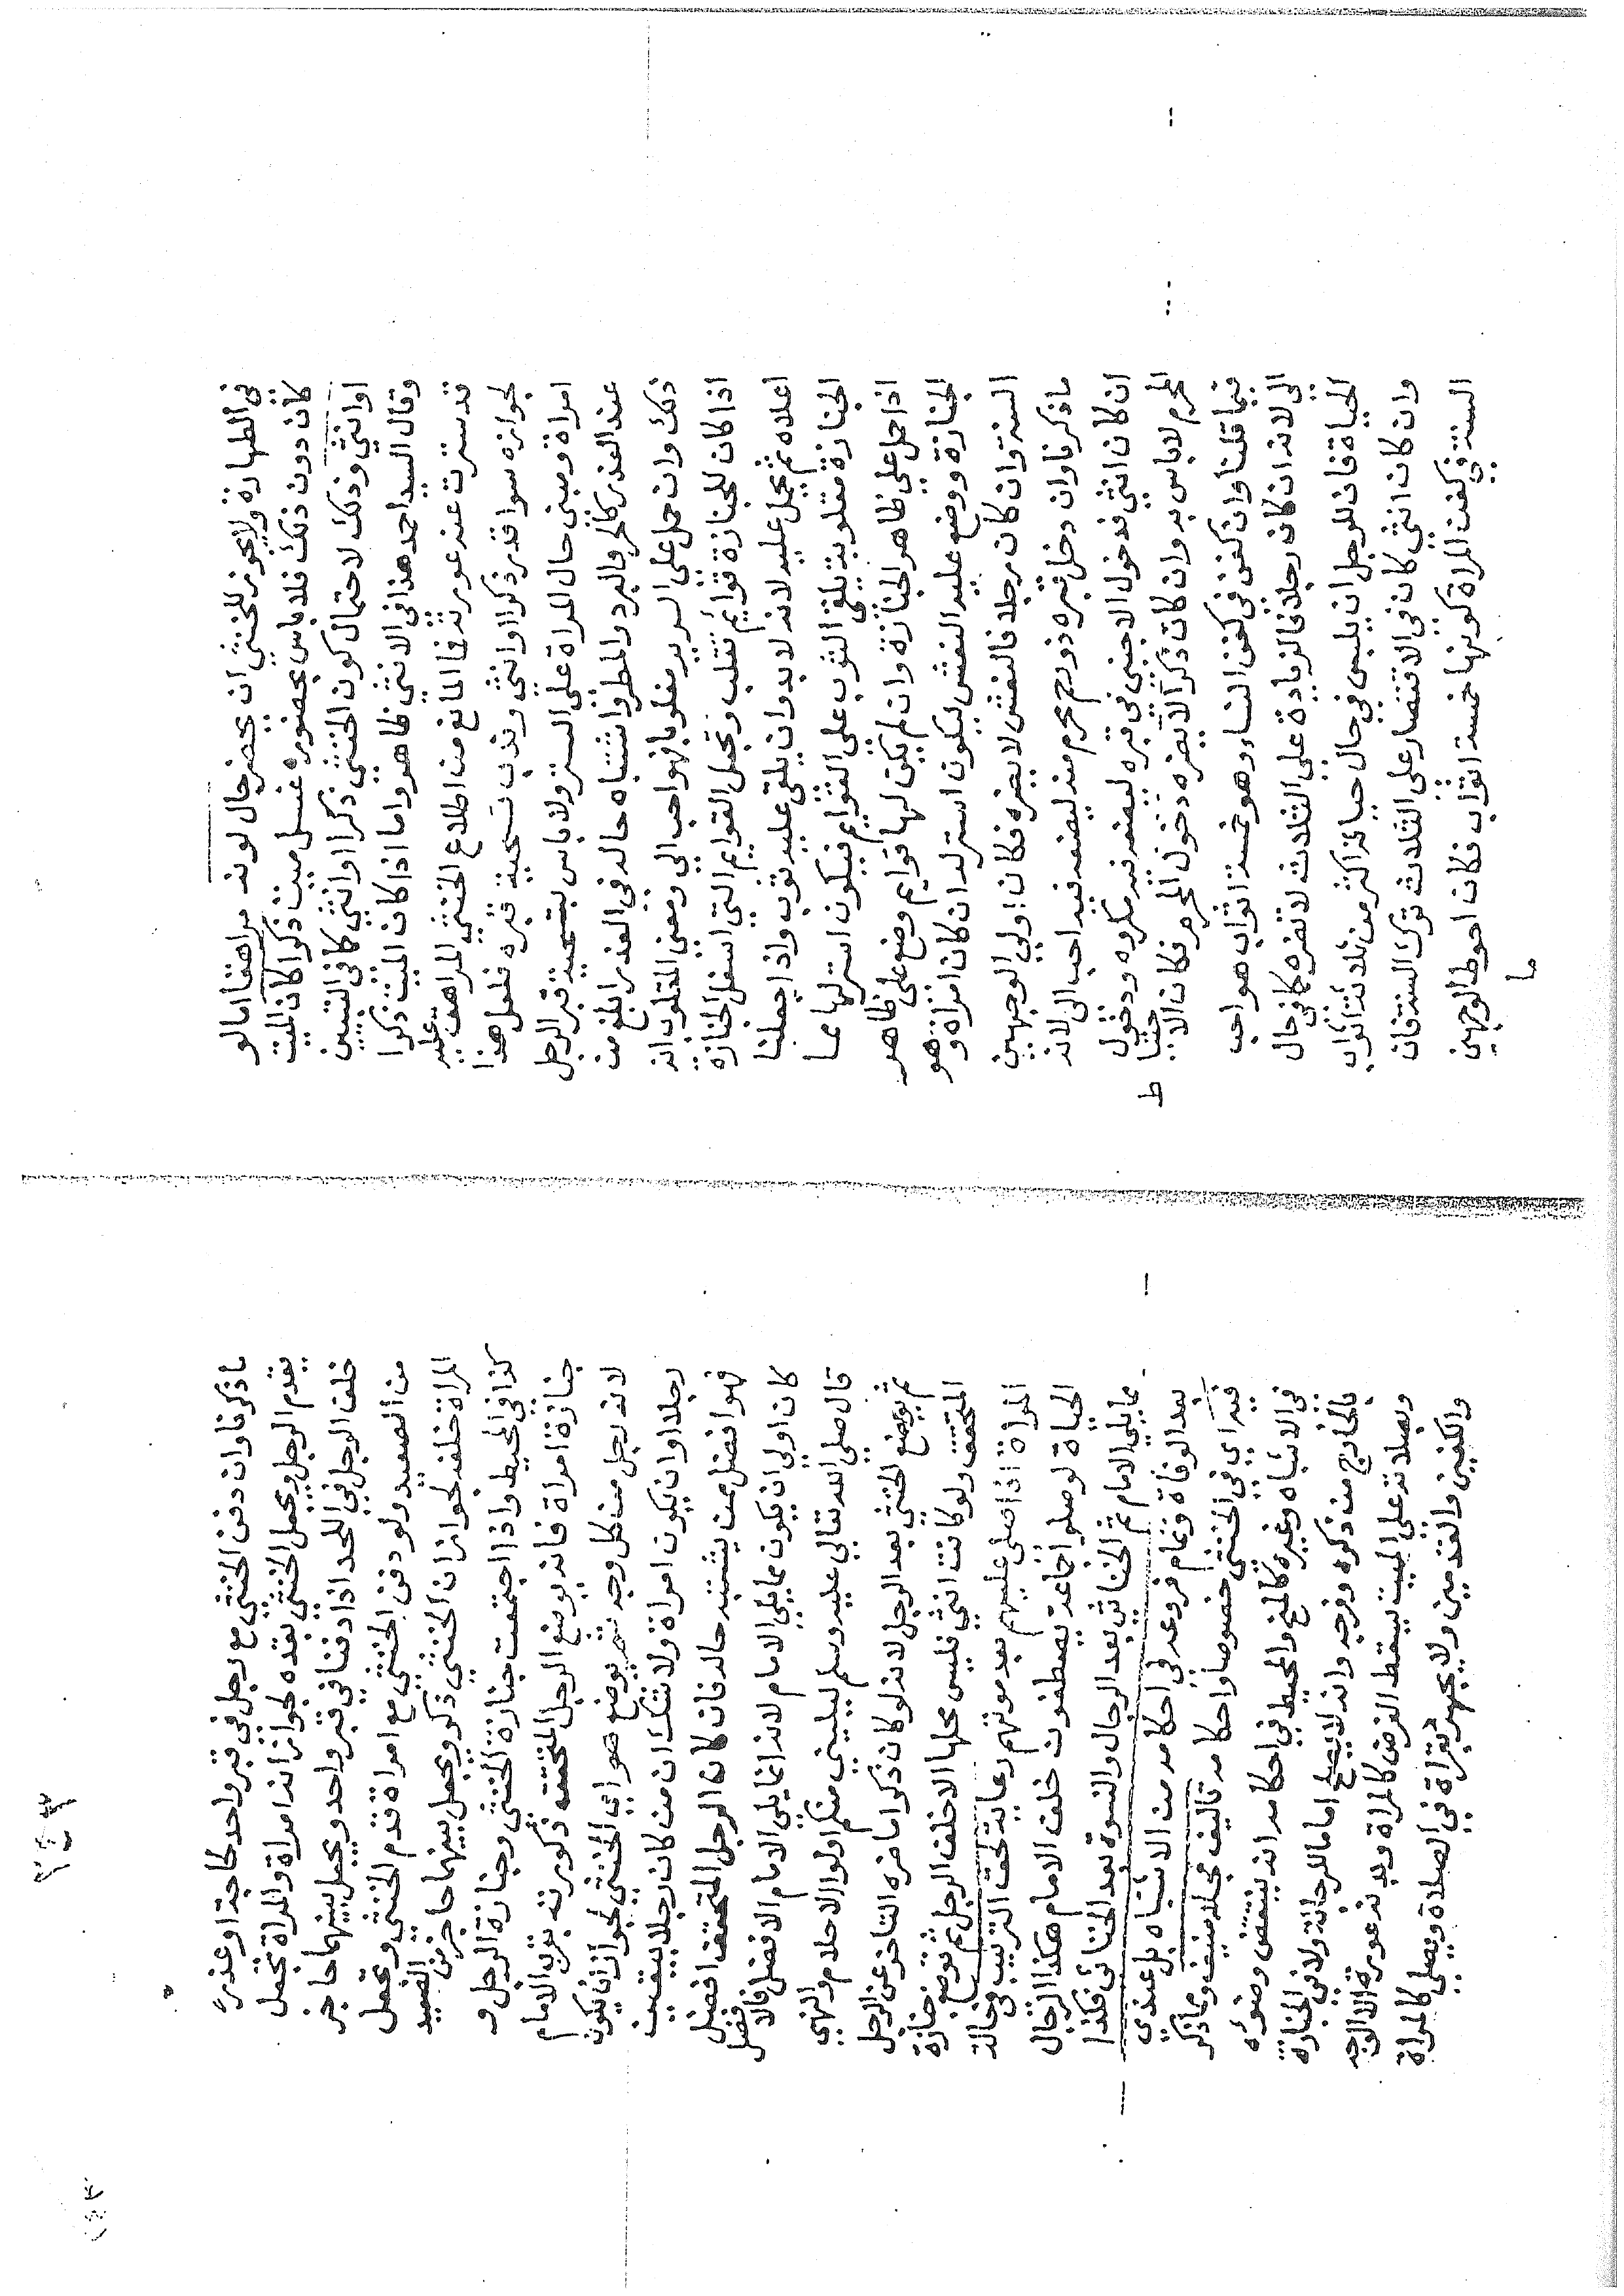 في الطهارة ولا يجوز للخنثي ان يحضر حال لونه مراهقا اما لو
كان دون ذلك فلا باس بحضوره غسل ميت ذكرا كان الميت
او انثي وذلك لاحتمال كون الخنثي ذكرا او انثي كما في التبيين
وقال السيد احمد هذا في الانثي ظاهر واما اذا كان الميت ذكرا
قد سترت عند عورته فما المانع من اطلاع الخنثي المراهق عليه
لجوازه سوا قدر ذكرا او انثي وندب تسجية قبره فلعل هذا
امراة ومبني حال المراة علي الستر ولا باس بتسجية قبر الرجل
عند العذر كالحر والبرد والمطر واشتباه حاله في العذر ابلغ من
ذلك وان حمل علي السرير مقلوبا فهو احب الي ومعني المقلوب انه
اذا كان للجنازة قوايم تقلب وتجعل القوايم التي اسفل الجنازة
اعلاه ثم يحمل عليه لانه لا بد وان يلقي عليه ثوب واذا جعلنا
الجنازة مقلوبة يلقي الثوب علي القوايم فيكون استر لها مما
اذا حمل علي ظاهر الجنازة وان لم يكن لها قوايم وضع علي ظاهر
الجنازة ووضع عليه النعش ليكون استر له ان كان امراة وهو
السنة وان كان رجلا فالنعش لا يضره فكان اولي الوجهين
ما ذكرنا وان دخل قبره ذو رحم محرم منه ليضعه فيه احب الي لانه
ان كان انثي فدخول الاجنبي في قبره ليضعه فيه مكروه ودخول
المحرم لا باس به وان كان ذكرا لا يضره دخول المحرم فكان الاحتياط
فيما قلنا وان كفن في كفن النساء وهو خمسة اثواب هو احب
الي لانه ان كان رجلا فالزيادة علي الثلاثة لا تضره كما في حال
الحياة فان للرجل ان يلبس في حال حياته اكثر من ثلاثة اثواب
وان كان انثي كان في الاقتصار علي الثلاثة ترك السنة فان
السنة في كفن المراة كونها خمسة اثواب فكان احوط الوجهين
ما
ما ذكرنا وان دفن الخنثي مع رجل في قبر واحد لحاجة او عذر
يقدم الرجل ويجعل الخنثي بعده لجواز انه امراة والمراة تجعل
خلف الرجل في اللحد اذا دفنا في قبر واحد ويجعل بينهما حاجز
من الصعيد ولو دفن الخنثي مع امراة قدم الخنثي وتجعل
المراة خلفه لجواز ان الخنثي ذكر ويجعل بينهما حاجز من الصعيد
كذا في المحيط واذا اجتمعت جنازة الخنثي وجنازة الرجل و
جنازة امراة فانه يوضع الرجل المتحقق ذكورته بقرب الامام
لانه رجل من كل وجه ثم يوضع هو اي الخنثي لجواز ان يكون
رجلا وان يكون امراة ولا شك ان من كان رجلا بيقين
فهو افضل ممن يشتبه حاله فان كان الرجل المتحقق افضل
كان اولي ان يكون مما يلي الامام لانه انما يلي الامام الافضل فالافضل
قال صلي الله تعالي عليه وسلم ليليني منكم اولوا الاحلام والنهي
ثم يوضع الخنثي بعد الرجل لانه لو كان ذكرا ما ضره التاخر عن الرجل
المتحقق ولو كانت انثي فليس محلها الا خلف الرجل ثم توضع جنازة
المراة اذا صلي عليهم بعد موتهم رعاية لحق الترتيب في حالة
الحياة لو صلوا جماعة يصطفون خلف الامام هكذا الرجال
مما يلي الامام ثم الخناثي بعد الرجال والنسوة بعد الخناثي فكذا
بعد الوفاة وتمام فروعه في احكامه من الاشباه بل عندي
فيه اي في الخنثي خصوصا واحكامه تاليف مجلد منيف ومما ذكر
في الاشباه وغيره كالمنح والمحيط في احكامه انه ينتقض وضؤه
بالخارج من ذكره وفرجه وانه لا يصلح اماما للرجال ولا في الجنازة
وبصلاته علي الميت يسقط الفرض كالمراة وبدنه عورة الا الوجه
والكفين والقدمين ولا يجهر بقراة في الصلاة ويصلي كالمراة